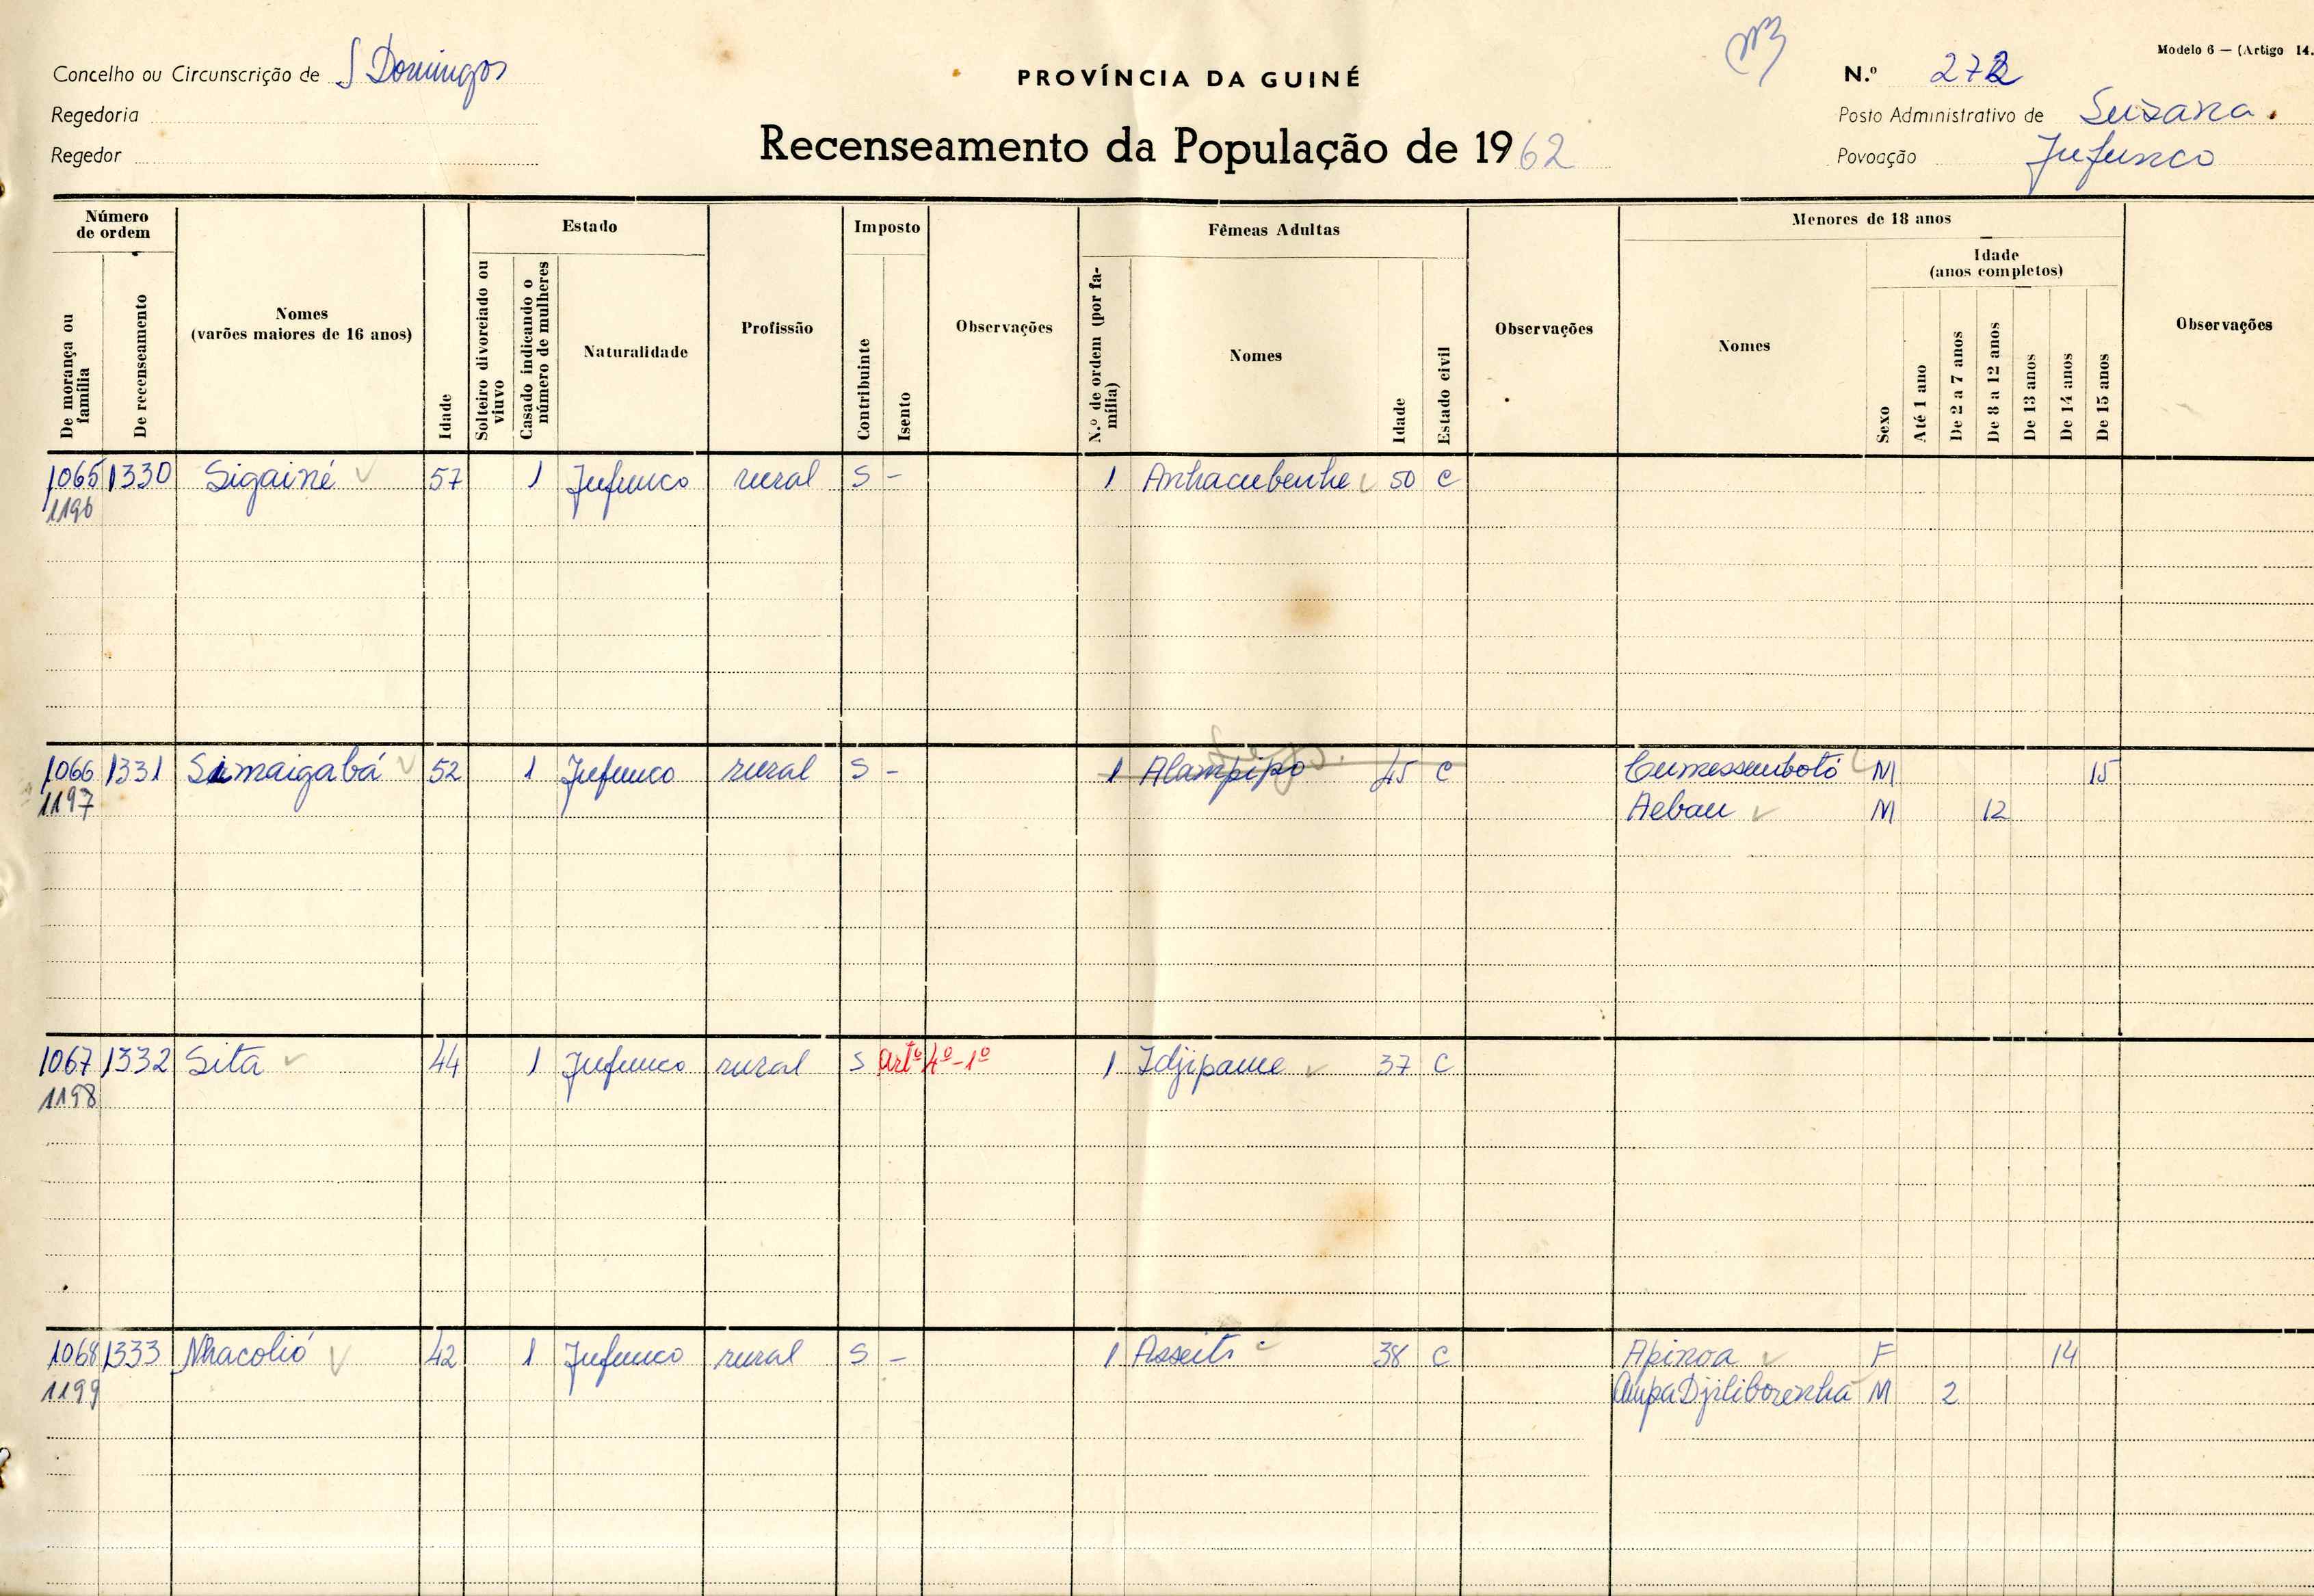 Modelo 6 — (Artigo 14.
Concelho ou Circunscrição de S Domingos
PROVÍNCIA DA GUINÉ
N.º 272
Regedoria
Posto Administrativo de Suzana.
Regedor
Recenseamento da População de 1962
Povoação Jufunco
Número de ordem
De morança ou família
De recenseamento
Nomes
(varões maiores de 16 anos)
Idade
Estado
Solteiro divorciado ou viuvo
Casado indicando o número de mulheres
Naturalidade
Profissão
Imposto
Contribuinte
Isento
Observações
Fêmeas Adultas
N.º de ordem (por família)
Nomes
Idade
Estado civil
Observações
Menores de 18 anos
Nomes
Sexo
Idade
(anos completos)
Até 1 ano
De 2 a 7 anos
De 8 a 12 anos
De 13 anos
De 14 anos
De 15 anos
Observações
1065 1330 Sigainé 57 1 Jufunco rural S - 1 Anhacubenhe 50 C
1196
1066 1331 Simaigabá 52 1 Jufunco rural S - 1 Alampipo 45 C Cumessembotó M 15
1197 Aebau M 12
1067 1332 Sita 44 1 Jufunco rural S artº 4º-1º 1 Idjipame 37 C
1198
1068 1333 Nhacolió 42 1 Jufunco rural S - 1 Asseits 38 C Apinoa F 14
1199 AmpaDjiliborenha M 2